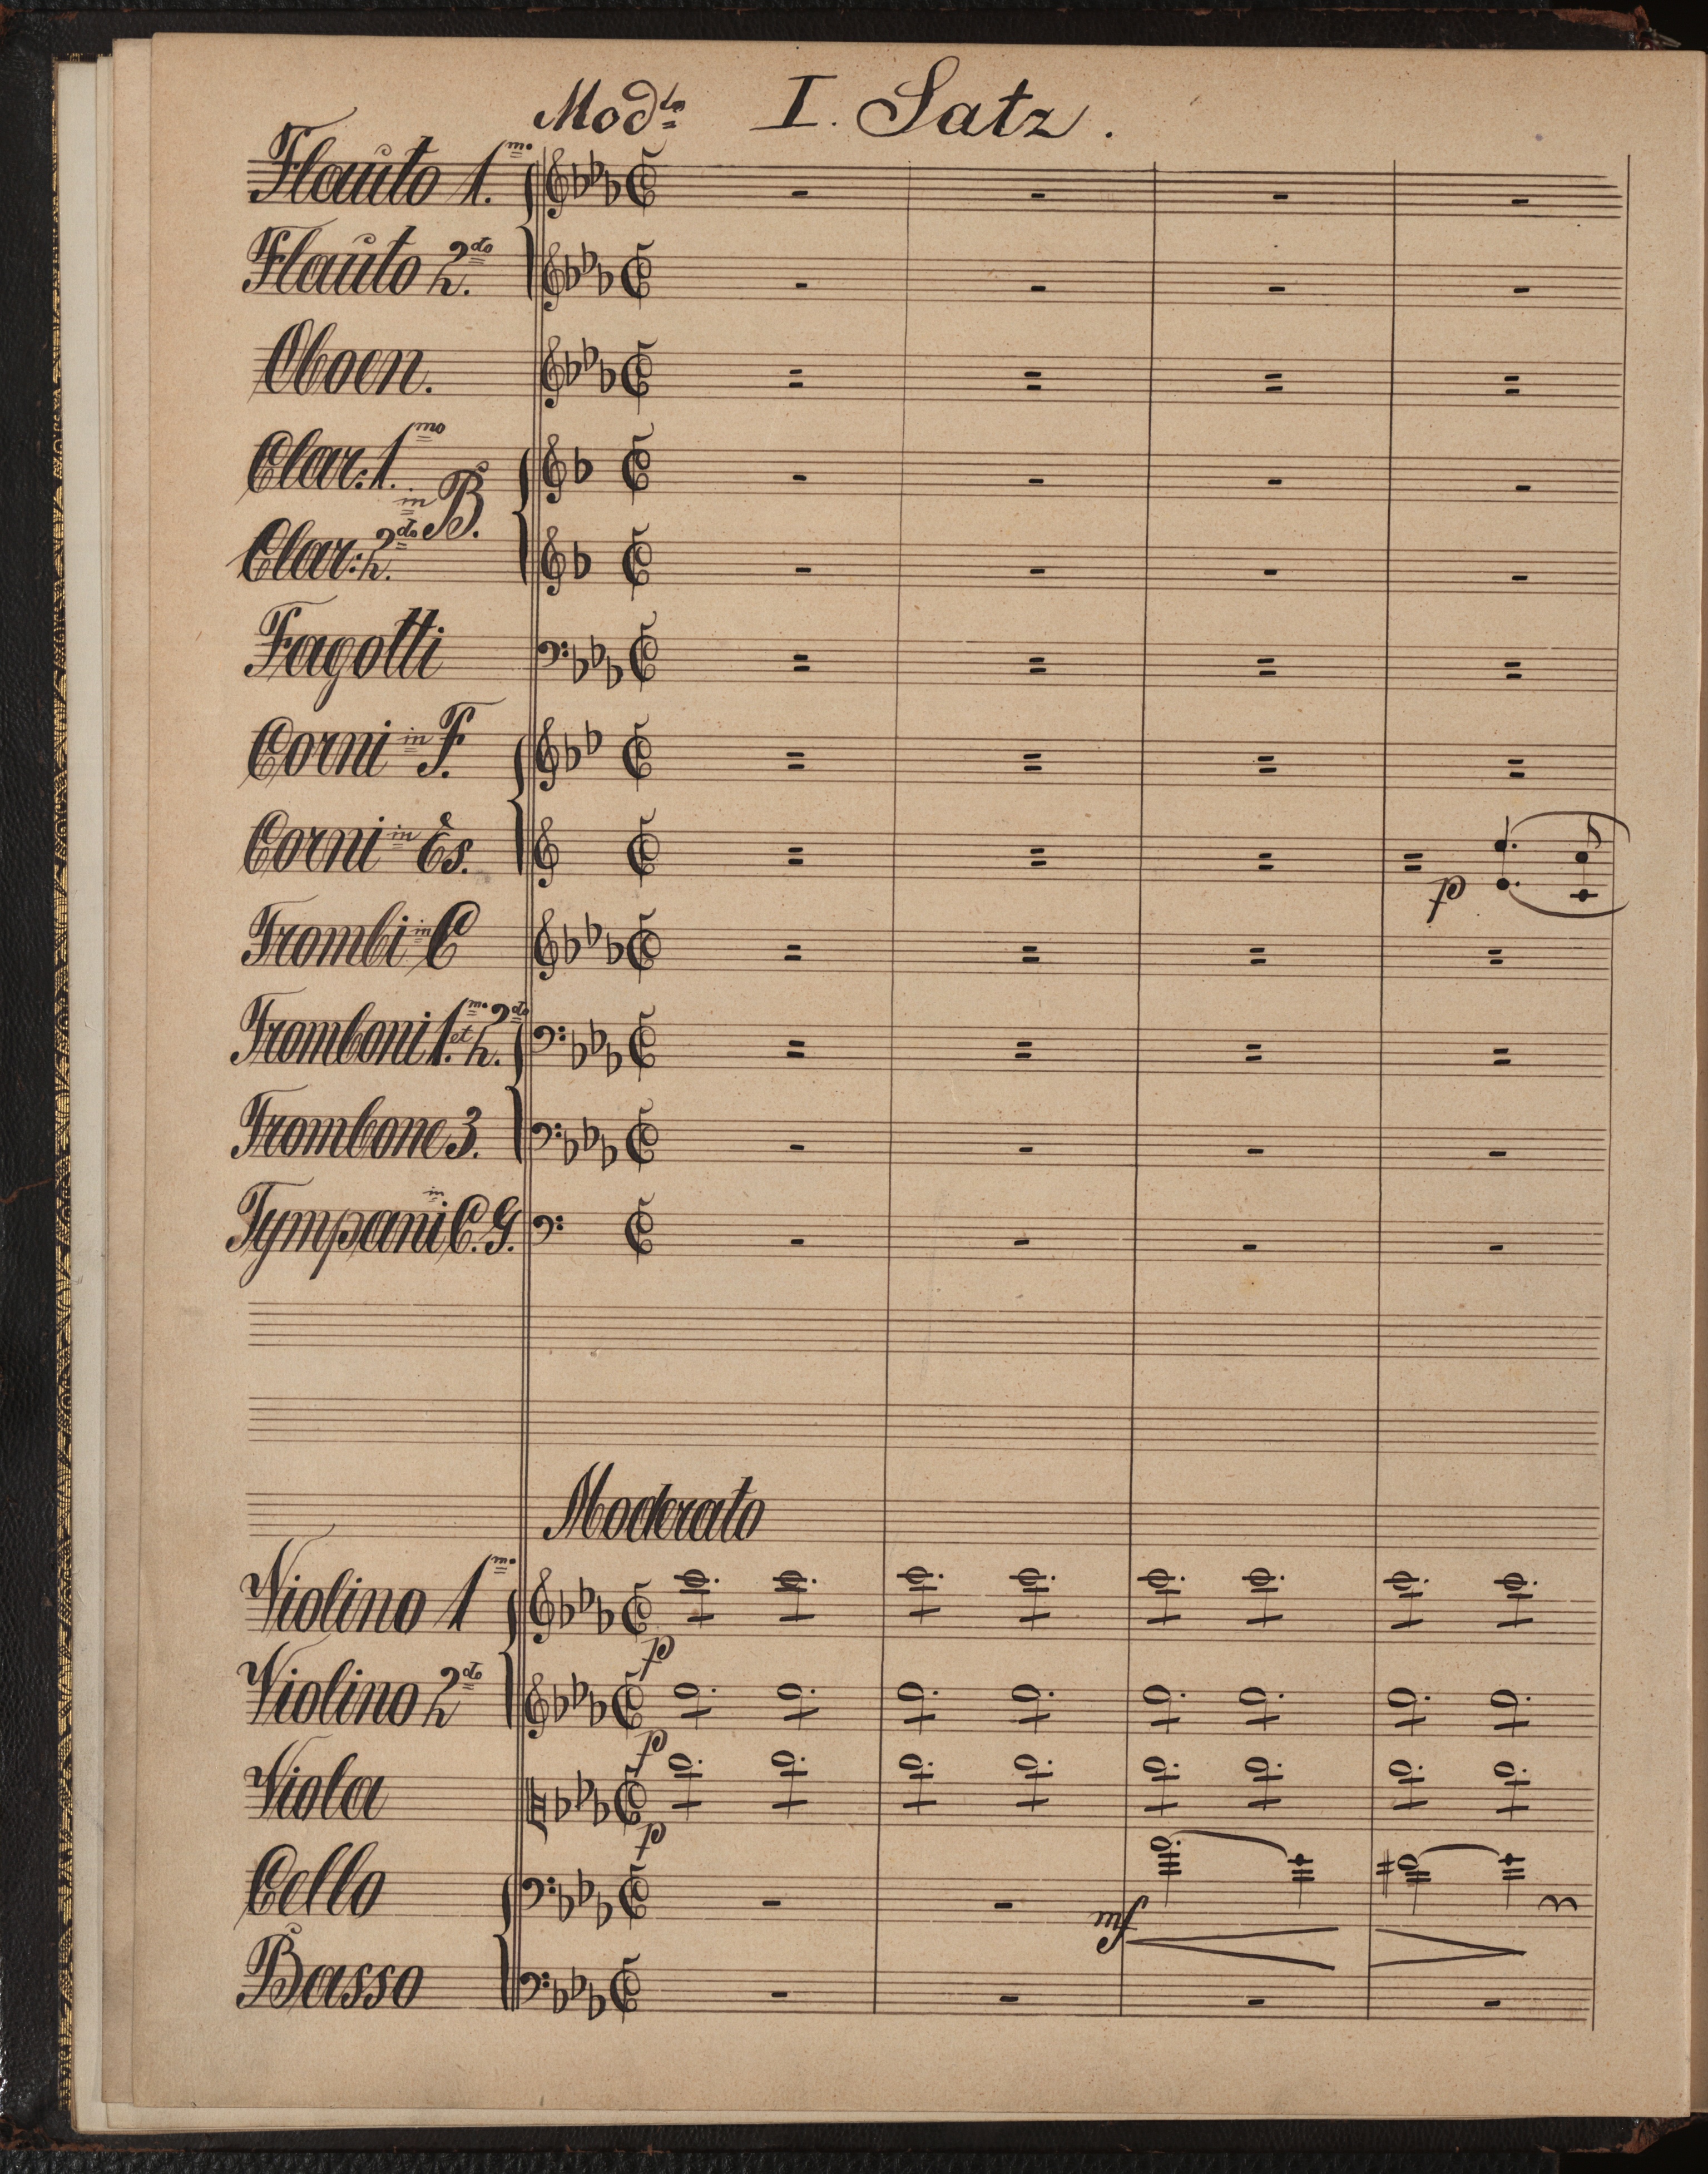 Modto I. Satz.
Flauto 1.mo
Flauto 2.do
Oboen.
Clar: 1.mo
in B.
Clar: 2.do
Fagotti
Corni in F.
Corni in Es.
p
Trombi in C
Tromboni 1.mo et 2.do
Trombone 3.
Tympani in C. G.
Moderato
Violino 1mo
p
Violino 2do
p
Viola
p
Cello
mf
Basso